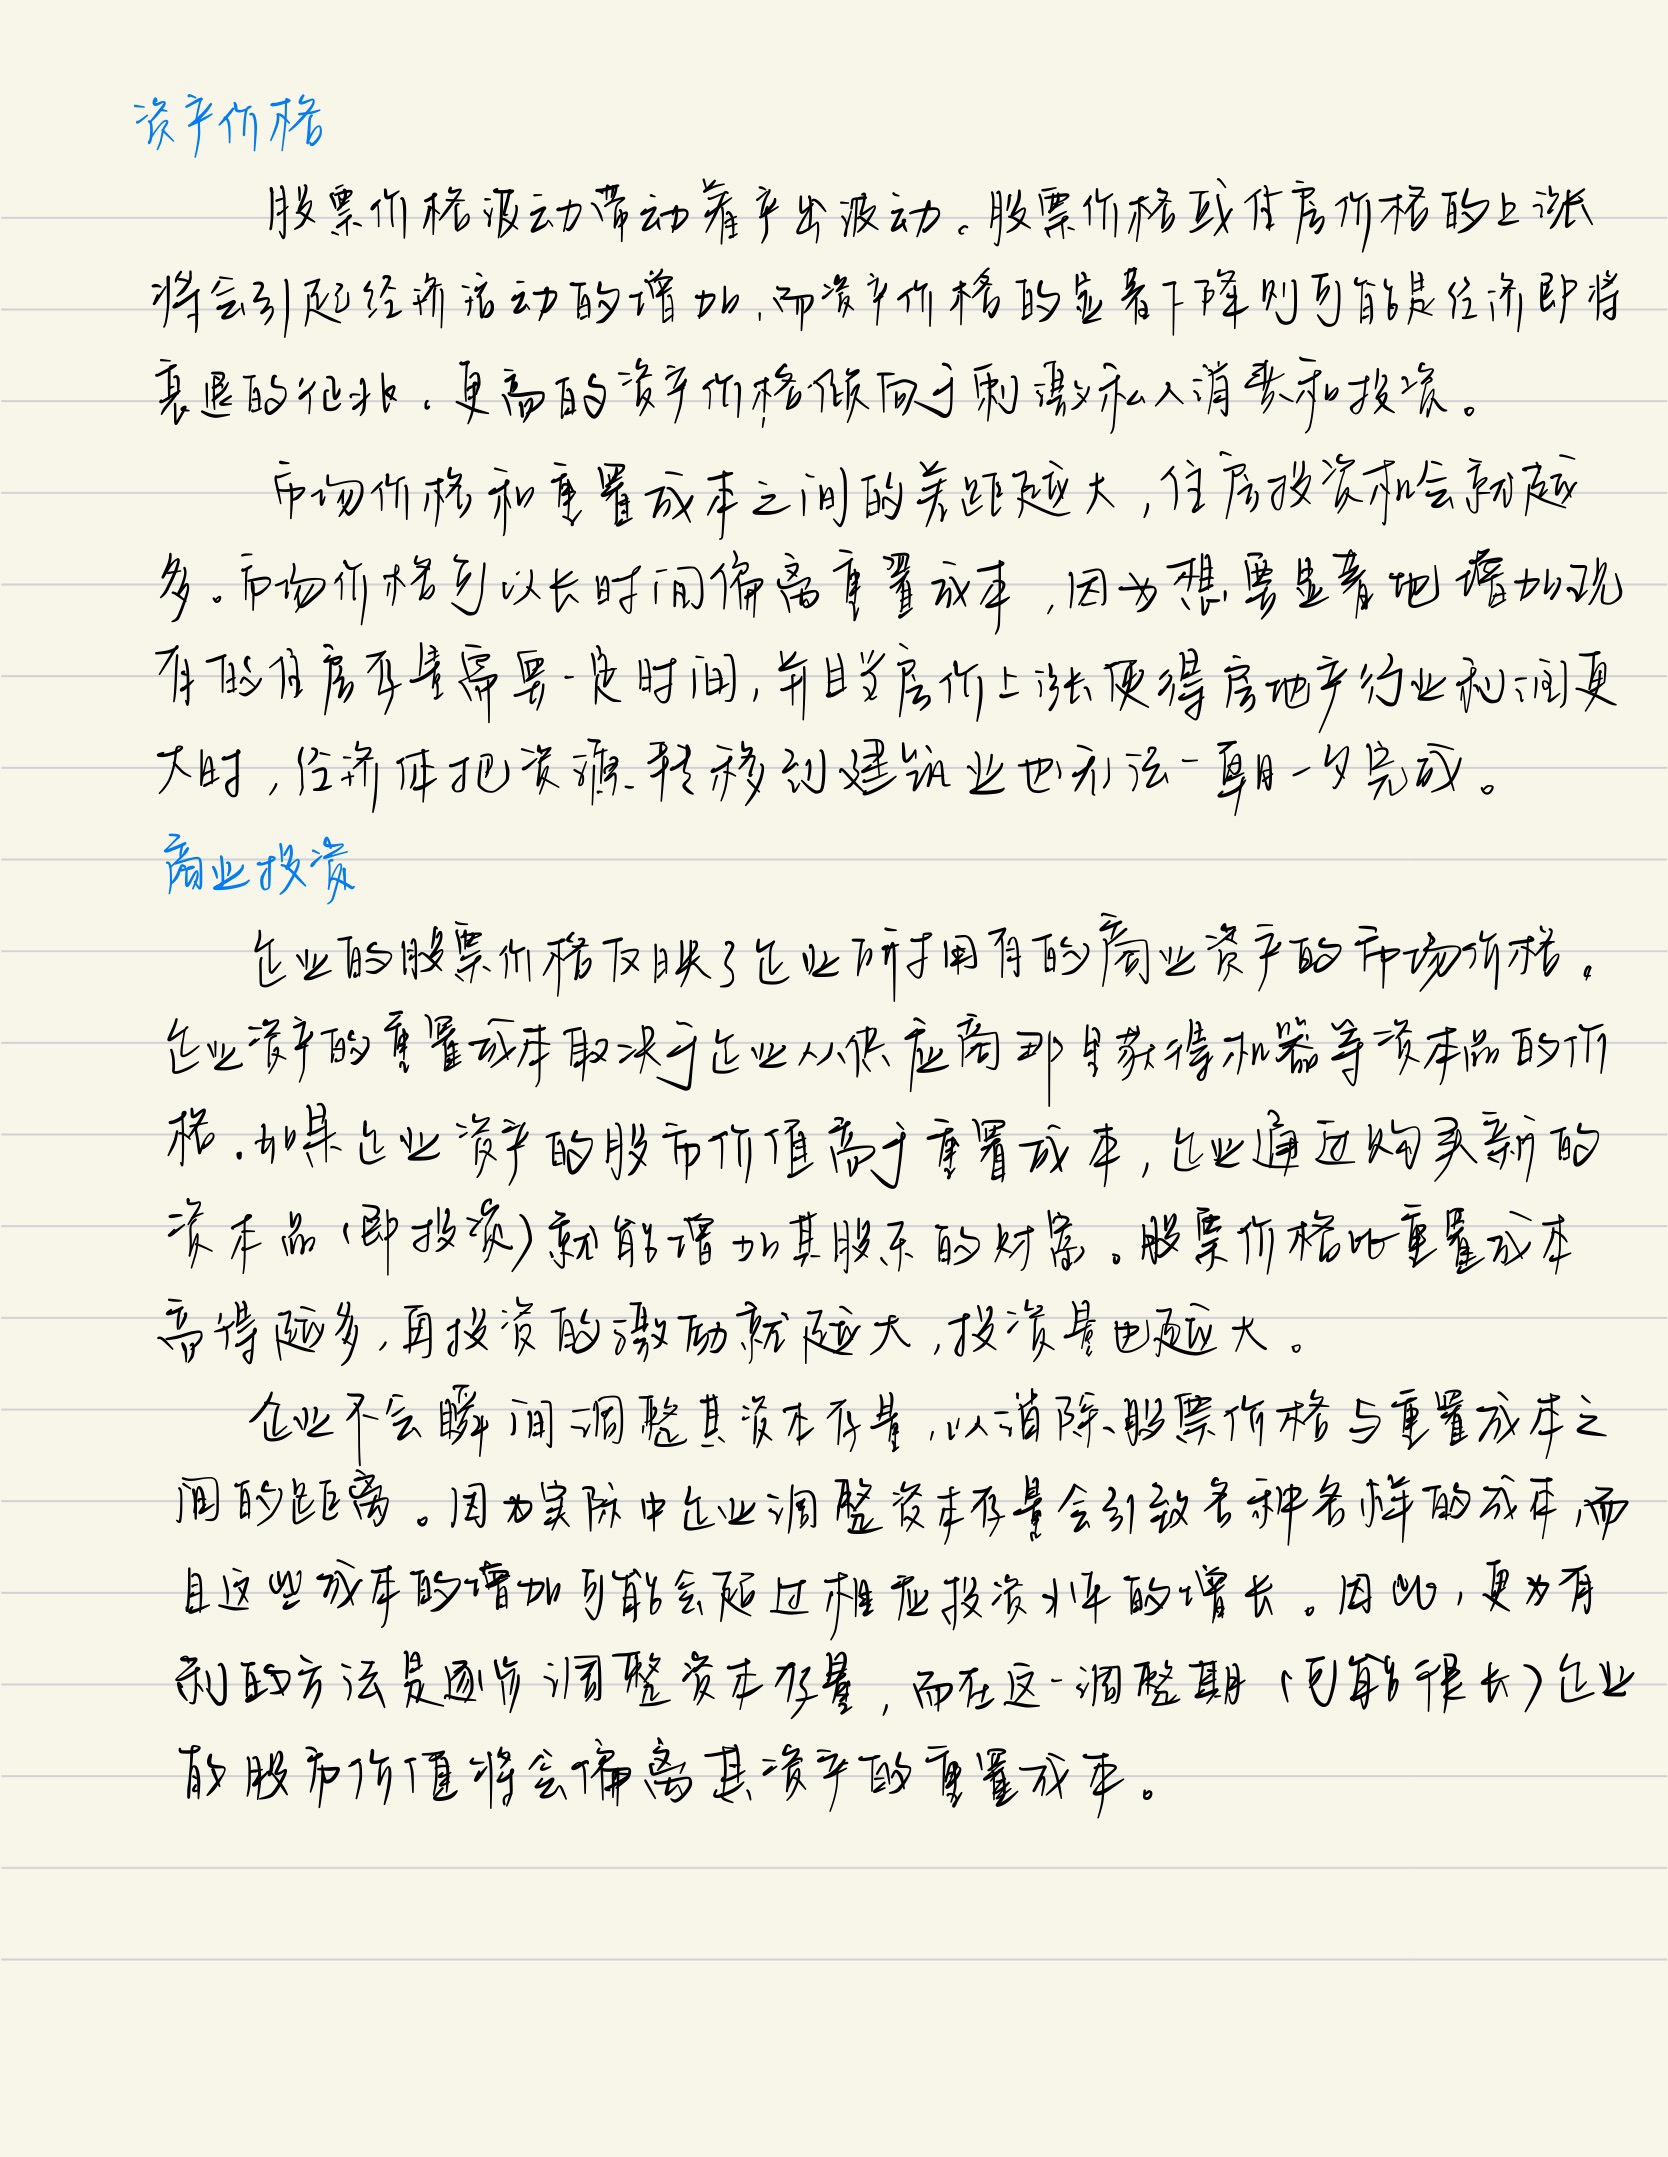 资产价格
股票价格波动带动着产出波动。股票价格或住房价格的上涨
将会引起经济活动的增加,而资产价格的显著下降则可能是经济即将
衰退的征兆。更高的资产价格倾向于刺激私人消费和投资。
市场价格和重置成本之间的差距越大,住房投资机会就越
多。市场价格可以长时间偏离重置成本,因为想要显著地增加现
有的住房存量需要一定时间,并且当房价上涨使得房地产行业利润更
大时,经济体把资源转移到建筑业也无法一朝一夕完成。
商业投资
企业的股票价格反映了企业所拥有的商业资产的市场价格。
企业资产的重置成本取决于企业从供应商那里获得机器等资本品的价
格。如果企业资产的股市价值高于重置成本,企业通过购买新的
资本品(即投资)就能增加其股东的财富。股票价格比重置成本
高得越多,再投资的激励就越大,投资量也越大。
企业不会瞬间调整其资本存量,以消除股票价格与重置成本之
间的距离。因为实际中企业调整资本存量会引致各种各样的成本,而
且这些成本的增加可能会超过相应投资水平的增长。因此,更为有
利的方法是逐步调整资本存量,而在这一调整期(可能很长)企业
的股市价值将会偏离其资产的重置成本。